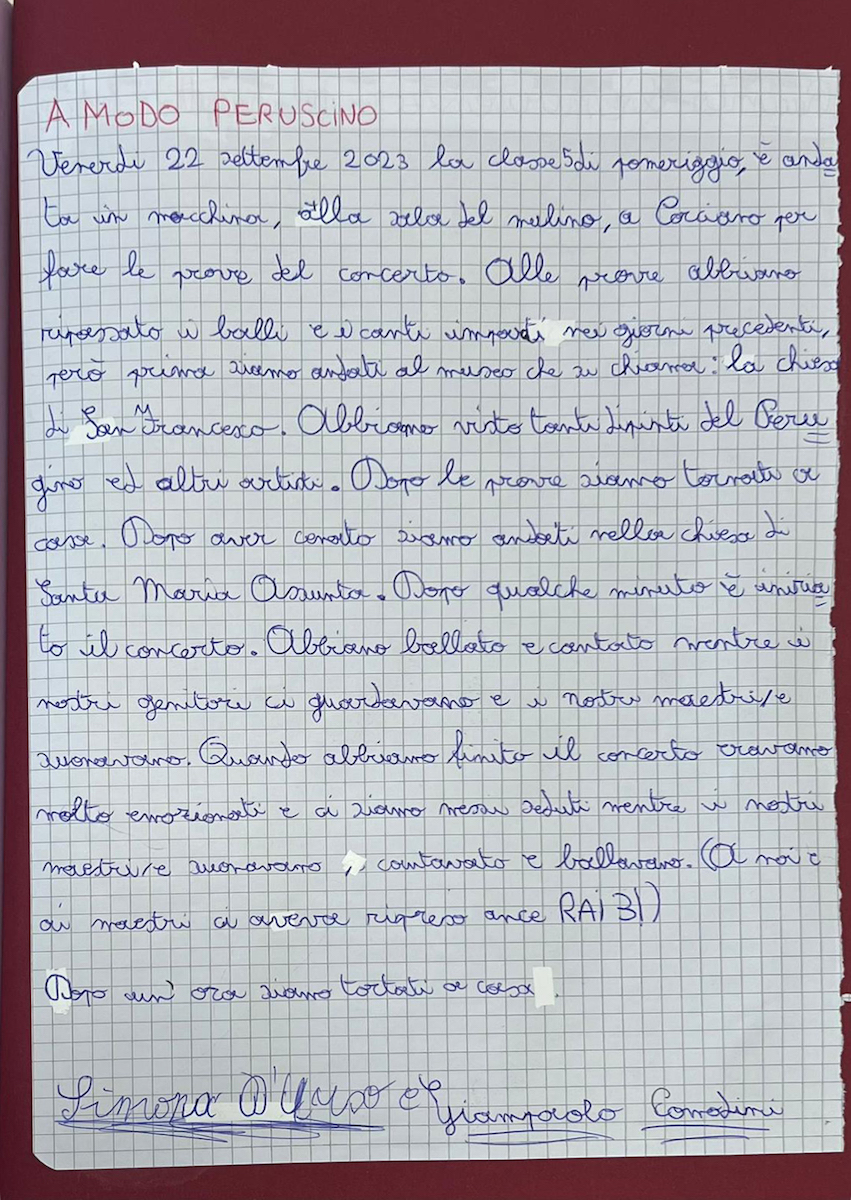 A MODO PERUSCINO
Venerdi 22 settembre 2023 la classe 5 di pomeriggio, è anda
ta in macchina, alla sala del mulino, a Corciano per
fare le prove del concerto. Alle prove abbiamo
ripassato i balli e i canti imparati nei giorni precedenti,
però prima siamo andati al museo che si chiama: la chiesa
di San Francesco. Abbiamo visto tanti dipinti del Peru
gino ed altri artisti. Dopo le prove siamo tornati a
casa. Dopo aver cenato siamo andati nella chiesa di
Santa Maria Assunta. Dopo qualche minuto è inizia
to il concerto. Abbiamo ballato e cantato mentre i
nostri genitori ci guardavano e i nostri maestri/e
suonavano. Quando abbiamo finito il concerto eravamo
molto emozionati e ci siamo messi seduti mentre i nostri
maestri/e suonavano, cantavato e ballavano. (A noi e
ai maestri ci aveva ripreso ance RAI 3!)
Dopo un' ora siamo tortati a casa.
Simona e Giampaolo